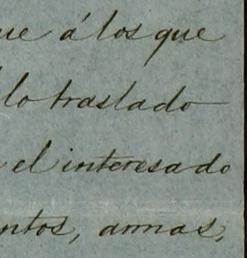 ue á los que
lo traslado
el interesado
ntos, armas,